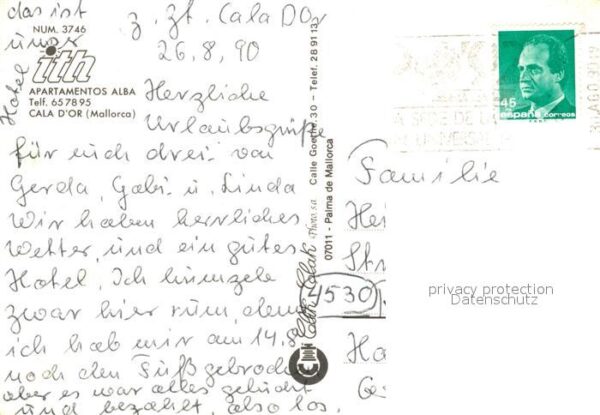 das ist
unser
Hotel
z. Zt. Cala D'Or
26.8.90
NUM. 3746
ith
APARTAMENTOS ALBA
Telf. 657895
CALA D'OR (Mallorca)
Herzliche
Urlaubsgrüße
für euch drei von
Gerda, Gabi u. Linda
Wir haben herrliches
Wetter und ein gutes
Hotel. Ich humpele
zwar hier rum, denn
ich hab mir am 14.8
noch den Fuß gebroche
aber es war alles gebucht
und bezahlt, also los.
Photo s.a. Calle Goethe, 30 - Telef. 28 91 13
07011 - Palma de Mallorca
45
españa correos
Familie
He
Str
4530
Ha
privacy protection
Datenschutz